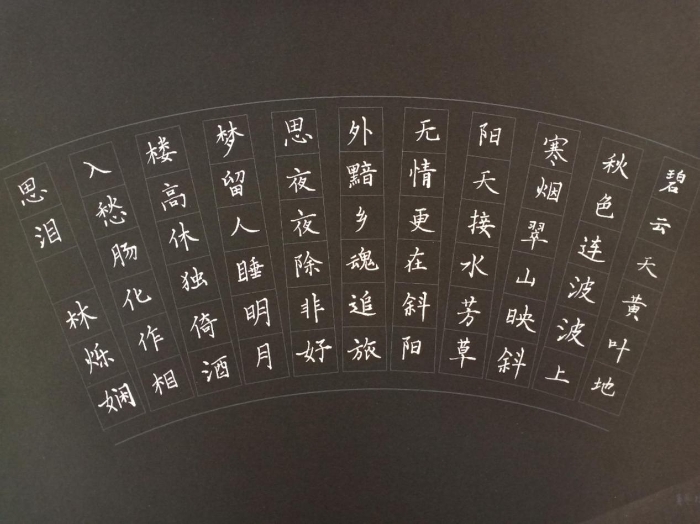 碧云天黄叶地
秋色连波波上
寒烟翠山映斜
阳天接水芳草
无情更在斜阳
外黯乡魂追旅
思夜夜除非好
梦留人睡明月
楼高休独倚酒
入愁肠化作相
思泪
林烁娴